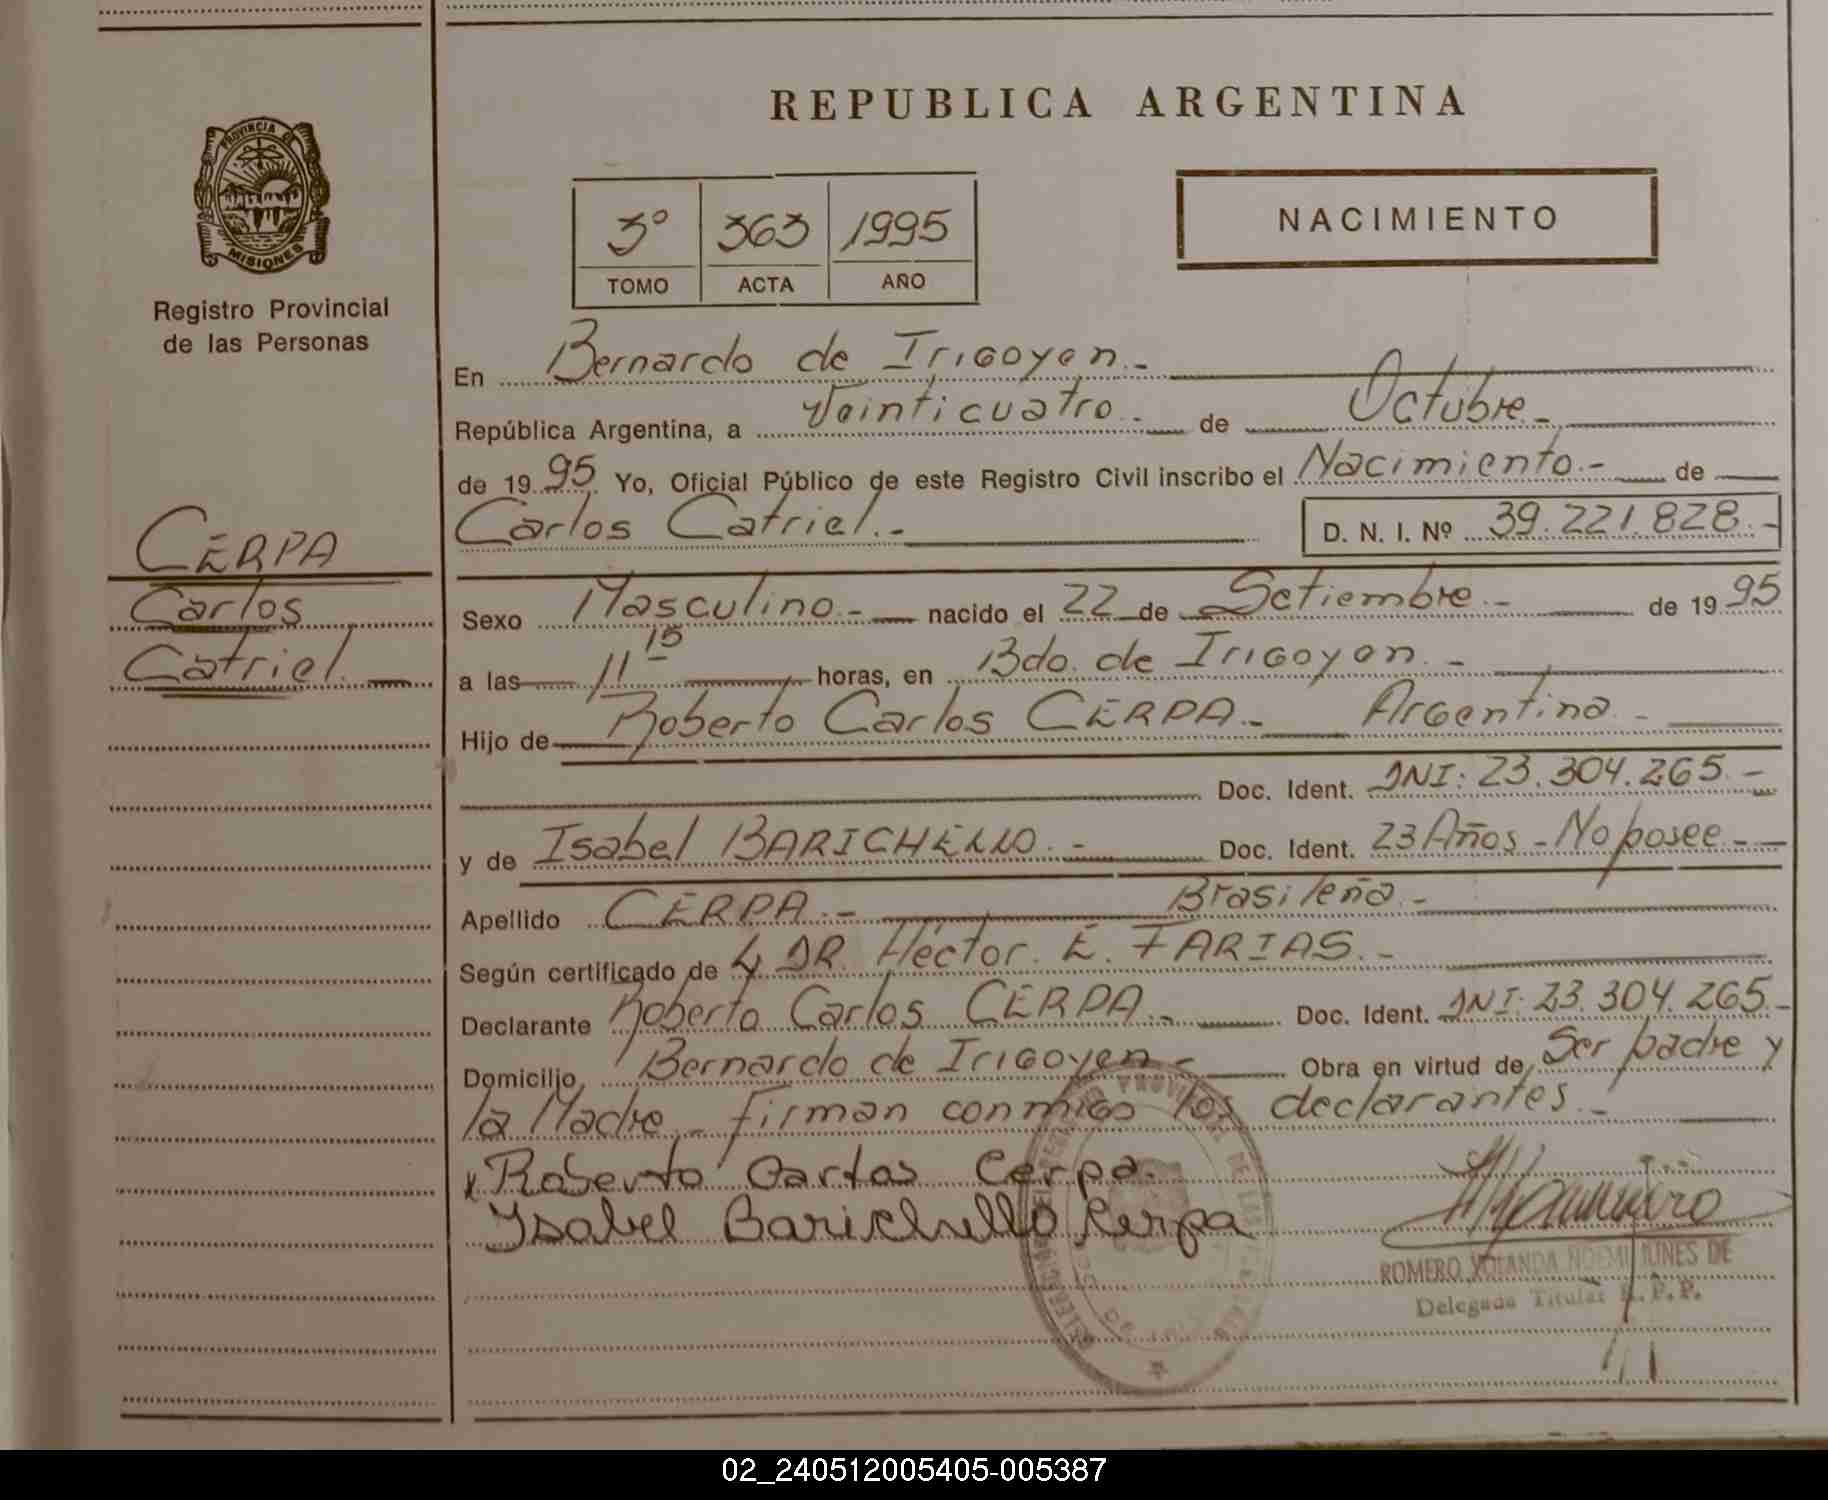 PROVINCIA DE
MISIONES
Registro Provincial
de las Personas
CERPA
Carlos
Catriel.
REPUBLICA ARGENTINA
3º 363 1995
TOMO ACTA AÑO
NACIMIENTO
En Bernardo de Irigoyen.-
República Argentina, a Veinticuatro.- de Octubre.-
de 1995 Yo, Oficial Público de este Registro Civil inscribo el Nacimiento.- de
Carlos Catriel.- D. N. I. Nº 39.221.828.-
Sexo Masculino.- nacido el 22 de Setiembre.- de 1995
a las 11 15 horas, en Bdo. de Irigoyen.-
Hijo de Roberto Carlos CERPA.- Argentina.-
Doc. Ident. DNI: 23.304.265.-
y de Isabel BARICHELLO.- Doc. Ident. 23 Años - No posee.-
Apellido CERPA.- Brasileña.-
Según certificado de DR. Héctor. E. FARIAS.-
Declarante Roberto Carlos CERPA.- Doc. Ident. DNI: 23.304.265.-
Domicilio Bernardo de Irigoyen.- Obra en virtud de Ser padre y
la Madre.- firman conmigo los declarantes.-
x Roberto Carlos Cerpa.
Ysabel Barichello Cerpa
ROMERO YOLANDA NOEMI NUNES DE
Delegada Titular R.P.P.
02_240512005405-005387